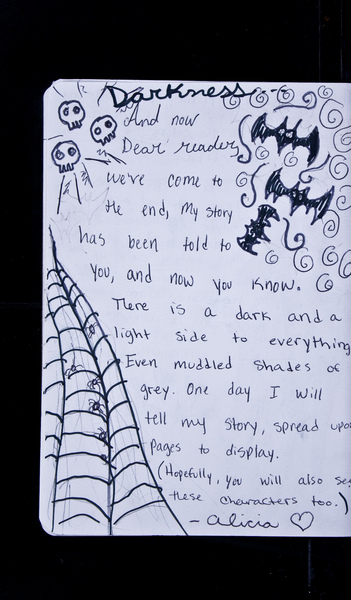 Darkness...
And now
Dear reader,
We've come to
the end, My story
has been told to
you, and now you know.
There is a dark and a
light side to everything
Even muddled shades of
grey. One day I will
tell my story, spread upon
pages to display.
(Hopefully, you will also see
these characters too.)
- alicia ♡